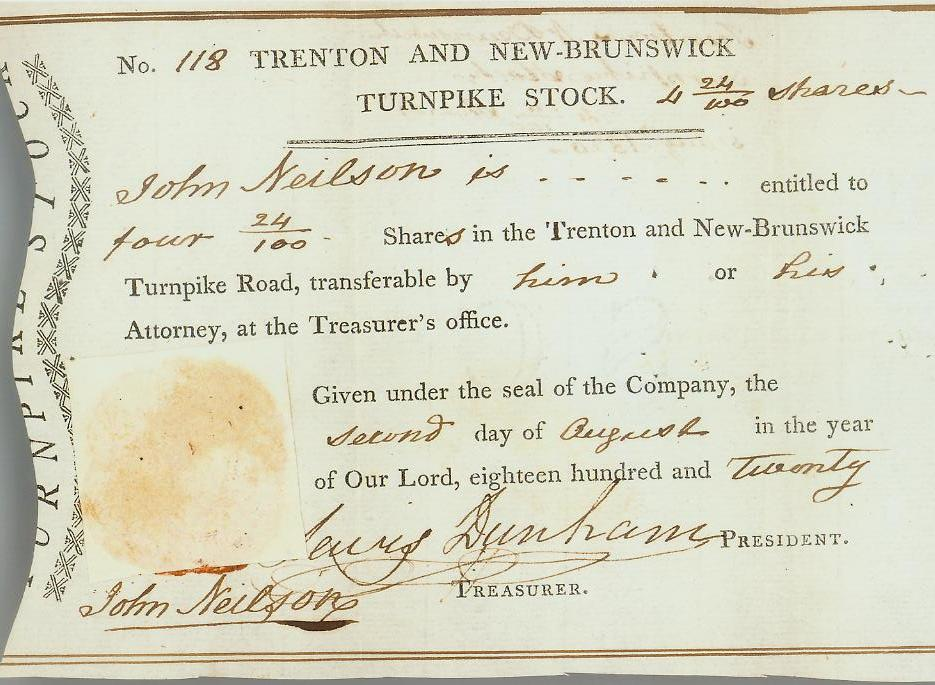 No. 118 TRENTON AND NEW-BRUNSWICK
TURNPIKE STOCK. 4 24/100 shares
John Neilson is - - - - - - entitled to
four 24/100 - Shares in the Trenton and New-Brunswick
Turnpike Road, transferable by him or his
Attorney, at the Treasurer's office.
Given under the seal of the Company, the
second day of August in the year
of Our Lord, eighteen hundred and twenty
Dunham PRESIDENT.
John Neilson TREASURER.
TURNPIKE STOCK